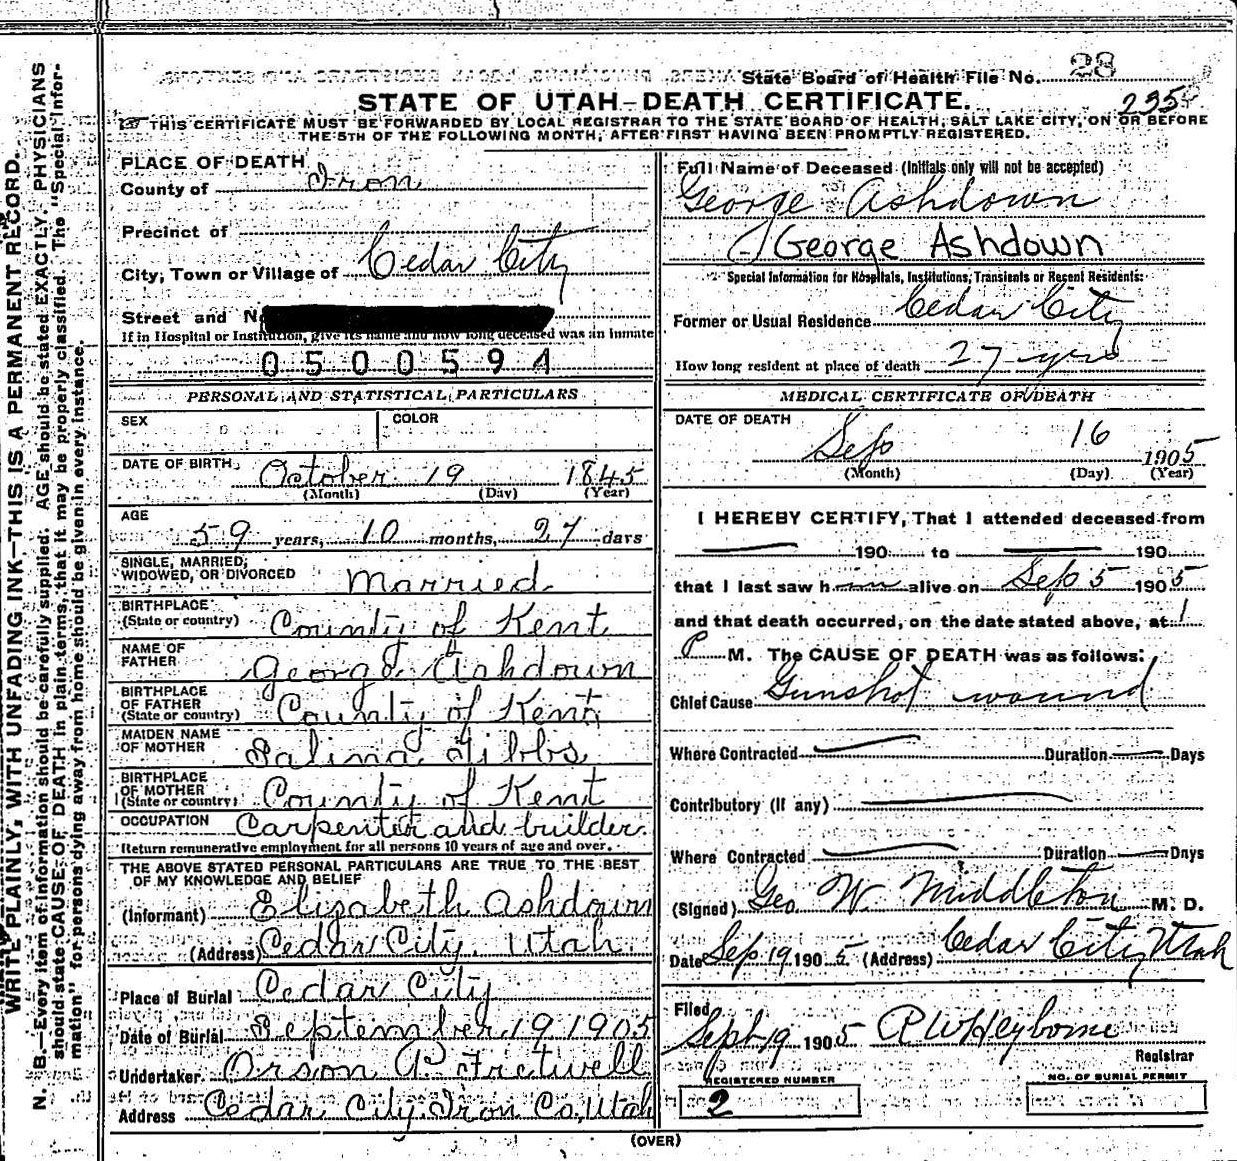 State Board of Health File No. 23
STATE OF UTAH—DEATH CERTIFICATE.
235
THIS CERTIFICATE MUST BE FORWARDED BY LOCAL REGISTRAR TO THE STATE BOARD OF HEALTH, SALT LAKE CITY, ON OR BEFORE
THE 5TH OF THE FOLLOWING MONTH, AFTER FIRST HAVING BEEN PROMPTLY REGISTERED.
WRITE PLAINLY, WITH UNFADING INK—THIS IS A PERMANENT RECORD.
N. B.—Every item of information should be carefully supplied. AGE should be stated EXACTLY. PHYSICIANS
should state CAUSE OF DEATH in plain terms, that it may be properly classified. The "Special Infor-
mation" for persons dying away from home should be given in every instance.
PLACE OF DEATH
County of Iron
Precinct of
City, Town or Village of Cedar City
Street and N
If in Hospital or Institution, give its name and how long deceased was an inmate
0500594
PERSONAL AND STATISTICAL PARTICULARS
SEX COLOR
DATE OF BIRTH October 19 1845
(Month) (Day) (Year)
AGE
59 years, 10 months, 27 days
SINGLE, MARRIED,
WIDOWED, OR DIVORCED Married
BIRTHPLACE
(State or country) County of Kent
NAME OF
FATHER George Ashdown
BIRTHPLACE
OF FATHER
(State or country) County of Kent
MAIDEN NAME
OF MOTHER Salina Gibbs
BIRTHPLACE
OF MOTHER
(State or country) County of Kent
OCCUPATION Carpenter and builder
Return remunerative employment for all persons 10 years of age and over.
THE ABOVE STATED PERSONAL PARTICULARS ARE TRUE TO THE BEST
OF MY KNOWLEDGE AND BELIEF
(Informant) Elizabeth Ashdown
(Address) Cedar City, Utah.
Place of Burial Cedar City
Date of Burial September 19 1905
Undertaker Orson P. Fretwell
Address Cedar City Iron Co, Utah
Full Name of Deceased (Initials only will not be accepted)
George Ashdown
George Ashdown
Special Information for Hospitals, Institutions, Transients or Recent Residents:
Former or Usual Residence Cedar City
How long resident at place of death 27 yrs
MEDICAL CERTIFICATE OF DEATH
DATE OF DEATH
Sep 16 1905
(Month) (Day) (Year)
I HEREBY CERTIFY, That I attended deceased from
190 to 190
that I last saw him alive on Sep 5 1905
and that death occurred, on the date stated above, at 1
P M. The CAUSE OF DEATH was as follows:
Chief Cause Gunshot wound
Where Contracted Duration Days
Contributory (If any)
Where Contracted Duration Days
(Signed) Geo W Middleton M. D.
Date Sep 19 1905 (Address) Cedar City Utah
Filed
Sept 19 1905 R W Heyborne
Registrar
REGISTERED NUMBER
2
NO. OF BURIAL PERMIT
(OVER)